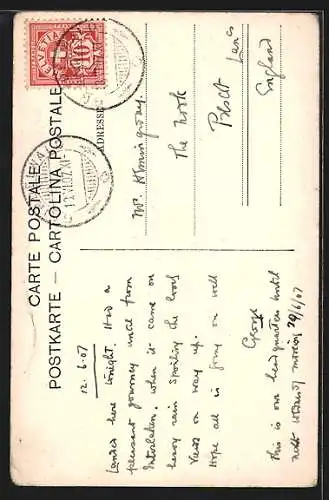 CARTE POSTALE
POSTKARTE — CARTOLINA POSTALE
ADRESSE
HELVETIA
10
12.VI.07.XI
12.6.07
Landed here tonight. Had a
pleasant journey until from
Interlaken, when it came on
heavy rain spoiling the lovely
views on way up.
Hope all is going on well
George
This is our headquarters until
next
Mr.
The Nook
Prescot
Lancs
England